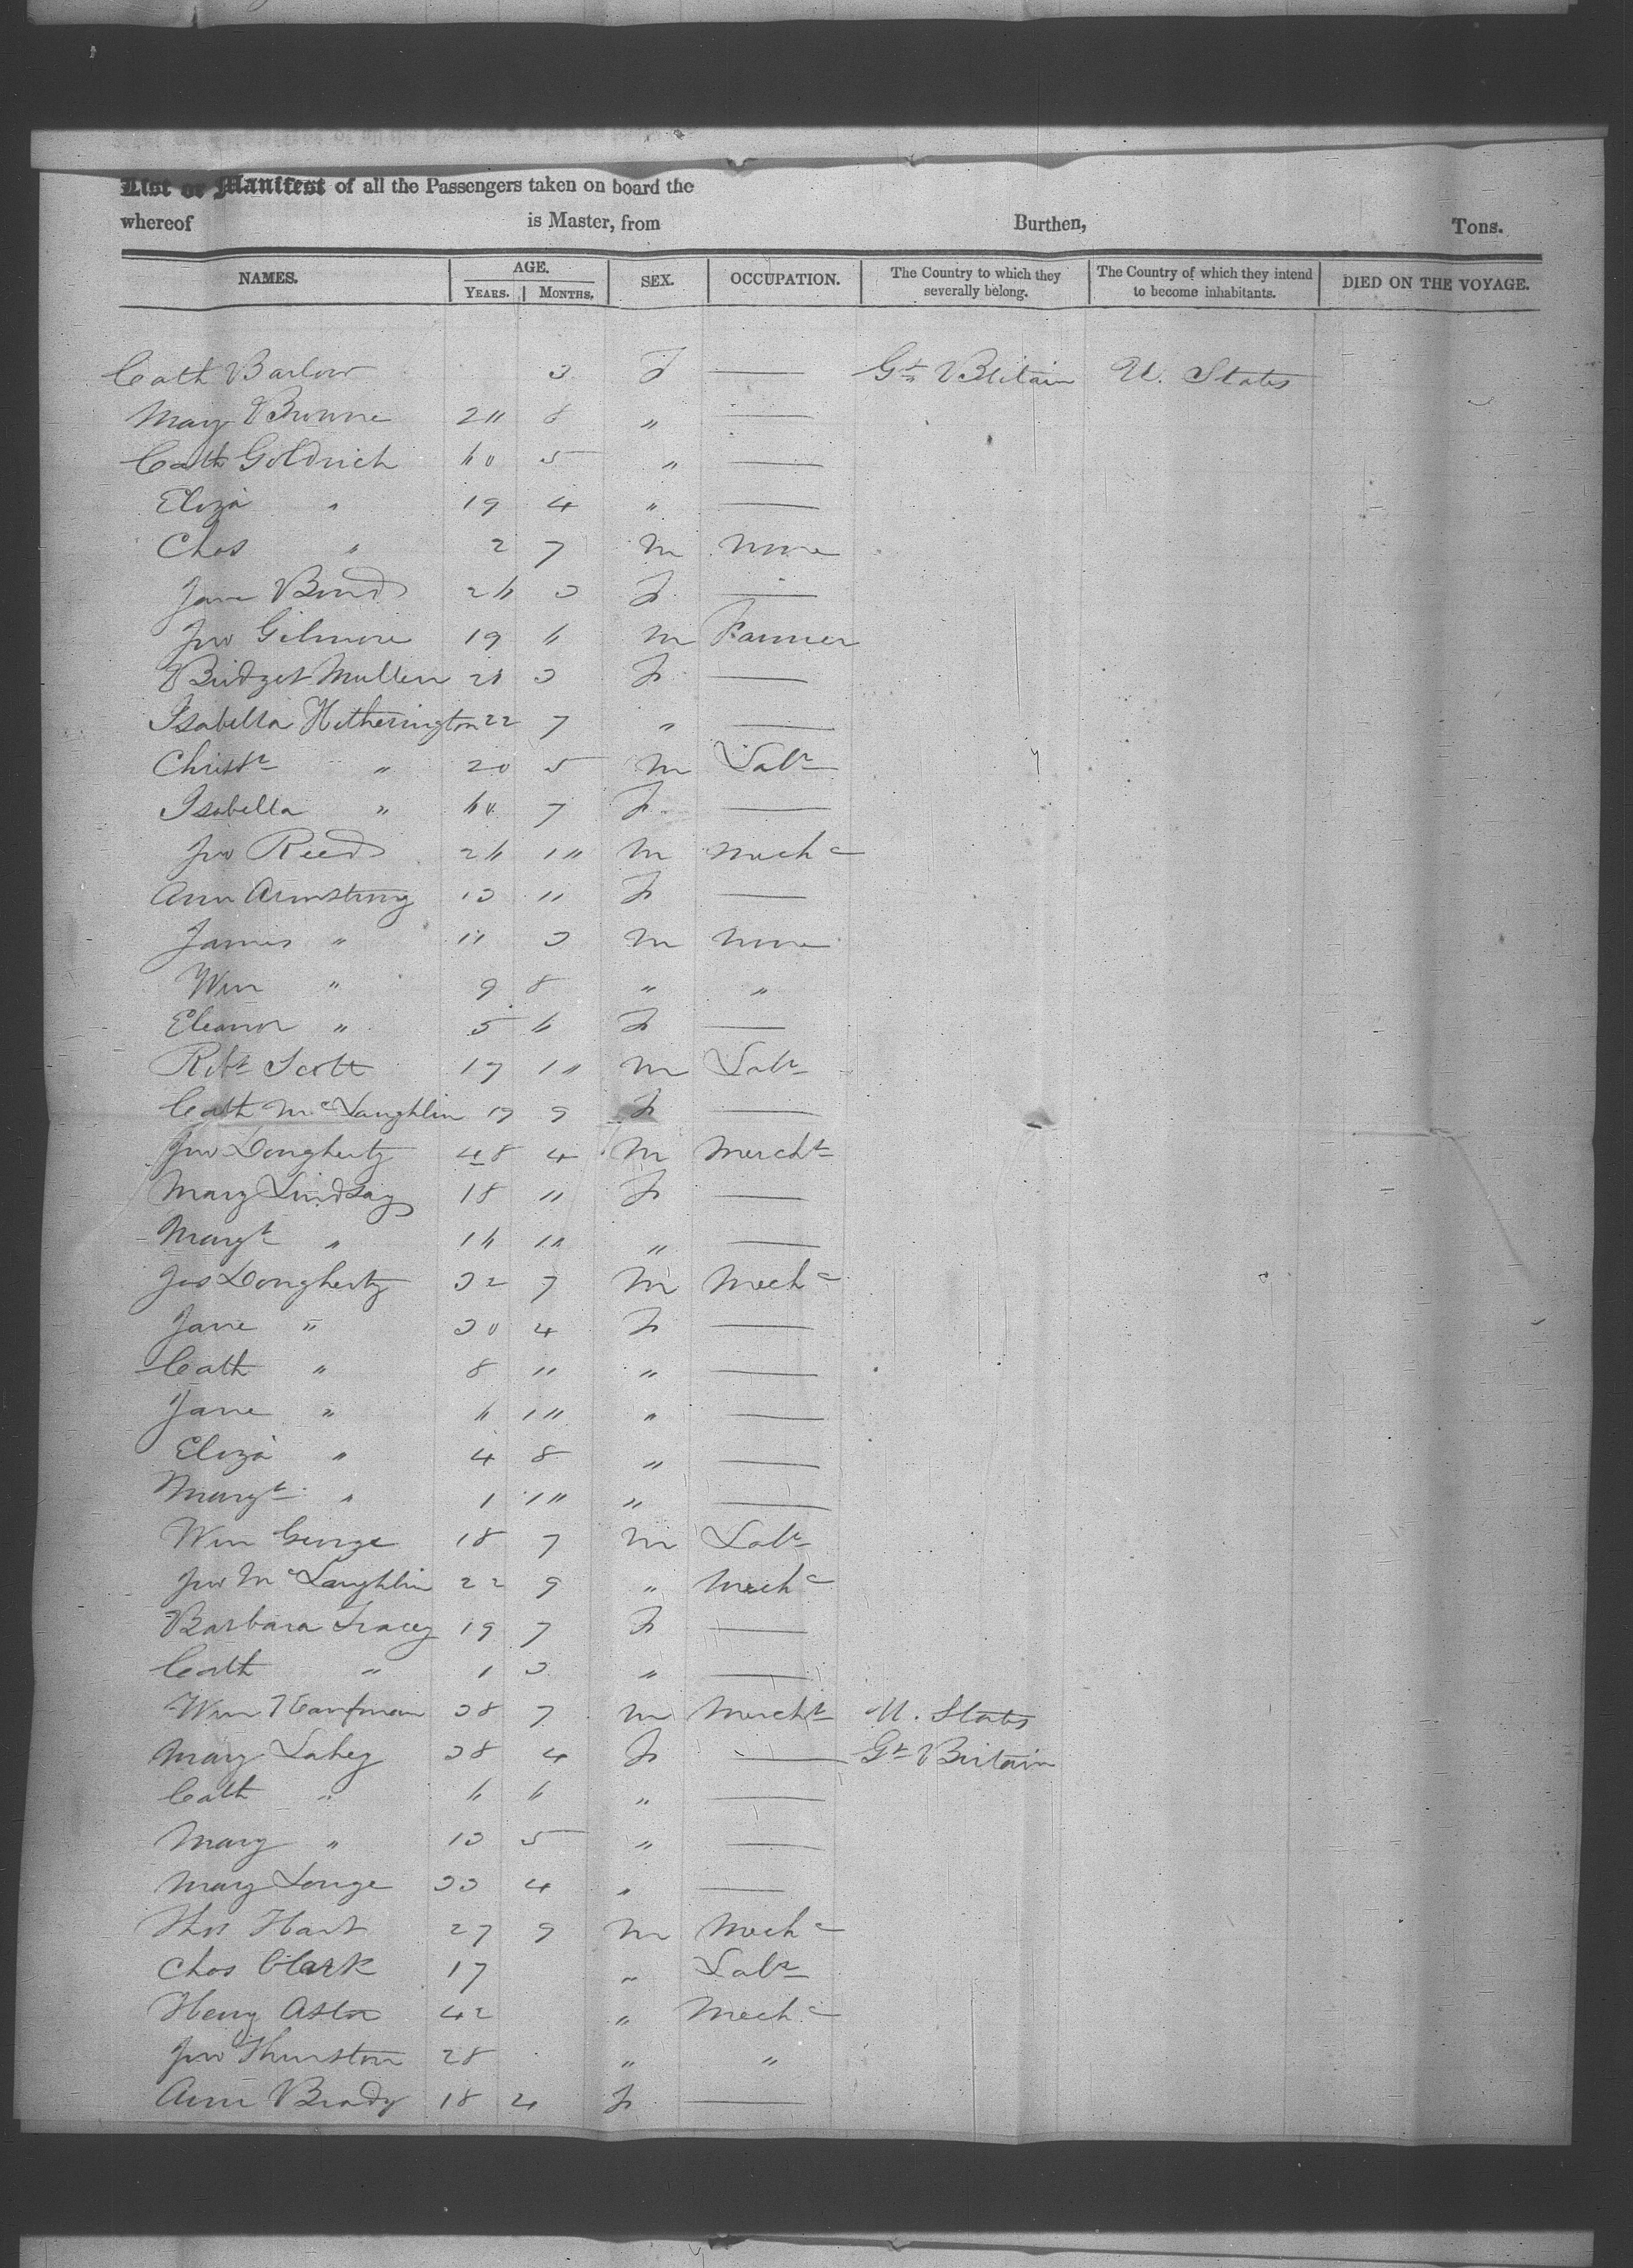 List or Manifest of all the Passengers taken on board the
whereof is Master, from Burthen, Tons.
NAMES. AGE. YEARS. MONTHS. SEX. OCCUPATION. The Country to which they severally belong. The Country of which they intend to become inhabitants. DIED ON THE VOYAGE.
Cath Barlow 3 F — Gt Britain U. States
Mary Browne 20 8 " —
Cath Goldrich 60 5 " —
Eliza " 19 4 " —
Chas " 2 7 M None
Jane Bond 26 3 F —
Jno Gilmore 19 6 M Farmer
Bridget Mullen 21 3 F —
Isabella Hetherington 22 7 " —
Christr " 20 5 M Labr
Isabella " 60 7 F —
Jno Reed 26 10 M Mechc
Ann Armstrong 13 11 F —
James " 11 3 M None
Wm " 9 8 " "
Eleanor " 5 6 F —
Robt Scott 17 10 M Labr
Cath McLaughlin 19 9 F —
Jno Dougherty 48 4 M Mercht
Mary Lindsay 18 11 F —
Margt " 16 10 " —
Jas Dougherty 32 7 M Mechc
Jane " 30 4 F —
Cath " 8 11 " —
Jane " 6 10 " —
Eliza " 4 8 " —
Margt " 1 10 " —
Wm George 18 7 M Labr
Jno McLaughlin 22 9 " Mechc
Barbara Tracey 19 7 F —
Cath " 1 3 " —
Wm Kaufman 38 7 M Mercht U. States
Mary Lahey 38 4 F — Gt Britain
Cath " 6 6 " —
Mary " 13 5 " —
Mary Longe 33 4 " —
Thos Hart 27 9 M Mechc
Chas Clark 17 " Labr
Henry Astor 42 " Mechc
Jno Thurston 28 " "
Ann Brady 18 4 F —